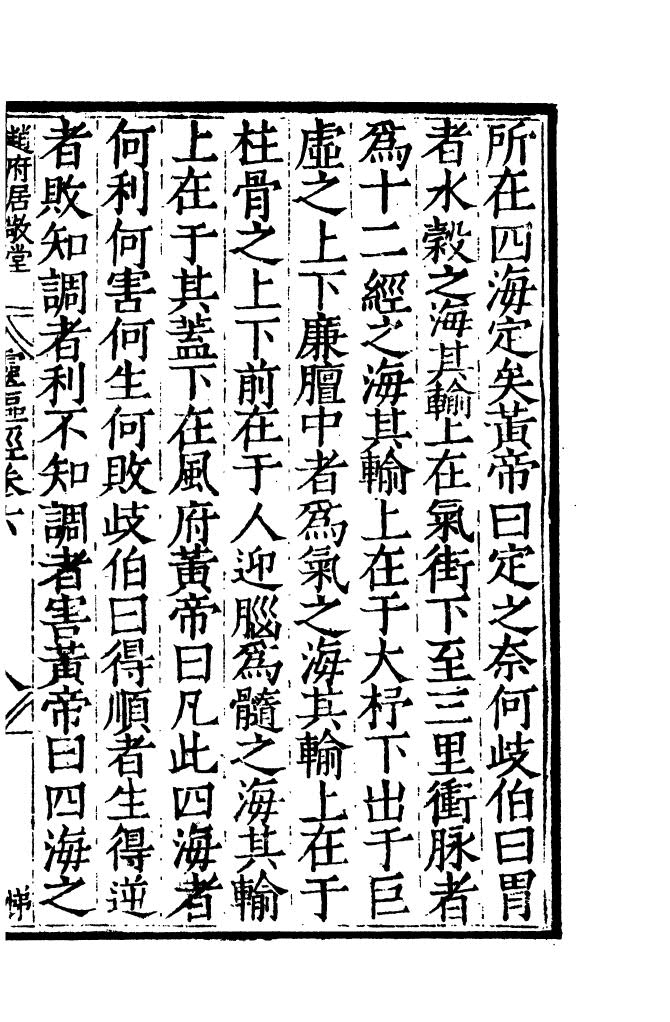 所在四海定矣黃帝曰定之奈何歧伯曰胃
者水榖之海其輸上在氣街下至三里衝脉者
爲十二經之海其輸上在于大杼下出于巨
虛之上下廉膻中者爲氣之海其輸上在于
柱骨之上下前在于人迎腦爲髓之海其輸
上在于其蓋下在風府黃帝曰凡此四海者
何利何害何生何敗歧伯曰得順者生得逆
者敗知調者利不知調者害黃帝曰四海之
趙府居敬堂 靈樞經卷六